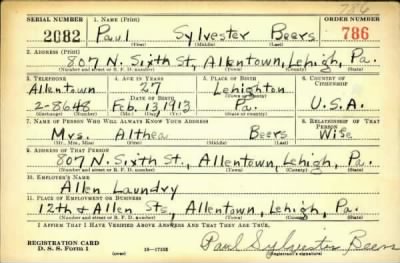 786
SERIAL NUMBER 1. NAME (Print) ORDER NUMBER
2082 Paul Sylvester Beers 786
(First) (Middle) (Last)
2. ADDRESS (Print)
807 N. Sixth St, Allentown, Lehigh, Pa.
(Number and street or R. F. D. number) (Town) (County) (State)
3. TELEPHONE 4. AGE IN YEARS 5. PLACE OF BIRTH 6. COUNTRY OF CITIZENSHIP
Allentown 27 Lehighton
DATE OF BIRTH
2-8648 Feb. 13, 1913 Pa. U.S.A.
(Exchange) (Number) (Mo.) (Day) (Yr.) (State or country)
7. NAME OF PERSON WHO WILL ALWAYS KNOW YOUR ADDRESS 8. RELATIONSHIP OF THAT PERSON
Mrs. Althea Beers Wife
(Mr., Mrs., Miss) (First) (Middle) (Last)
9. ADDRESS OF THAT PERSON
807 N. Sixth St., Allentown, Lehigh, Pa.
(Number and street or R. F. D. number) (Town) (County) (State)
10. EMPLOYER'S NAME
Allen Laundry
11. PLACE OF EMPLOYMENT OR BUSINESS
12th & Allen Sts, Allentown, Lehigh, Pa.
(Number and street or R. F. D. number) (Town) (County) (State)
I AFFIRM THAT I HAVE VERIFIED ABOVE ANSWERS AND THAT THEY ARE TRUE.
REGISTRATION CARD
D. S. S. Form 1 (over) Paul Sylvester Beers
(Registrant's signature)